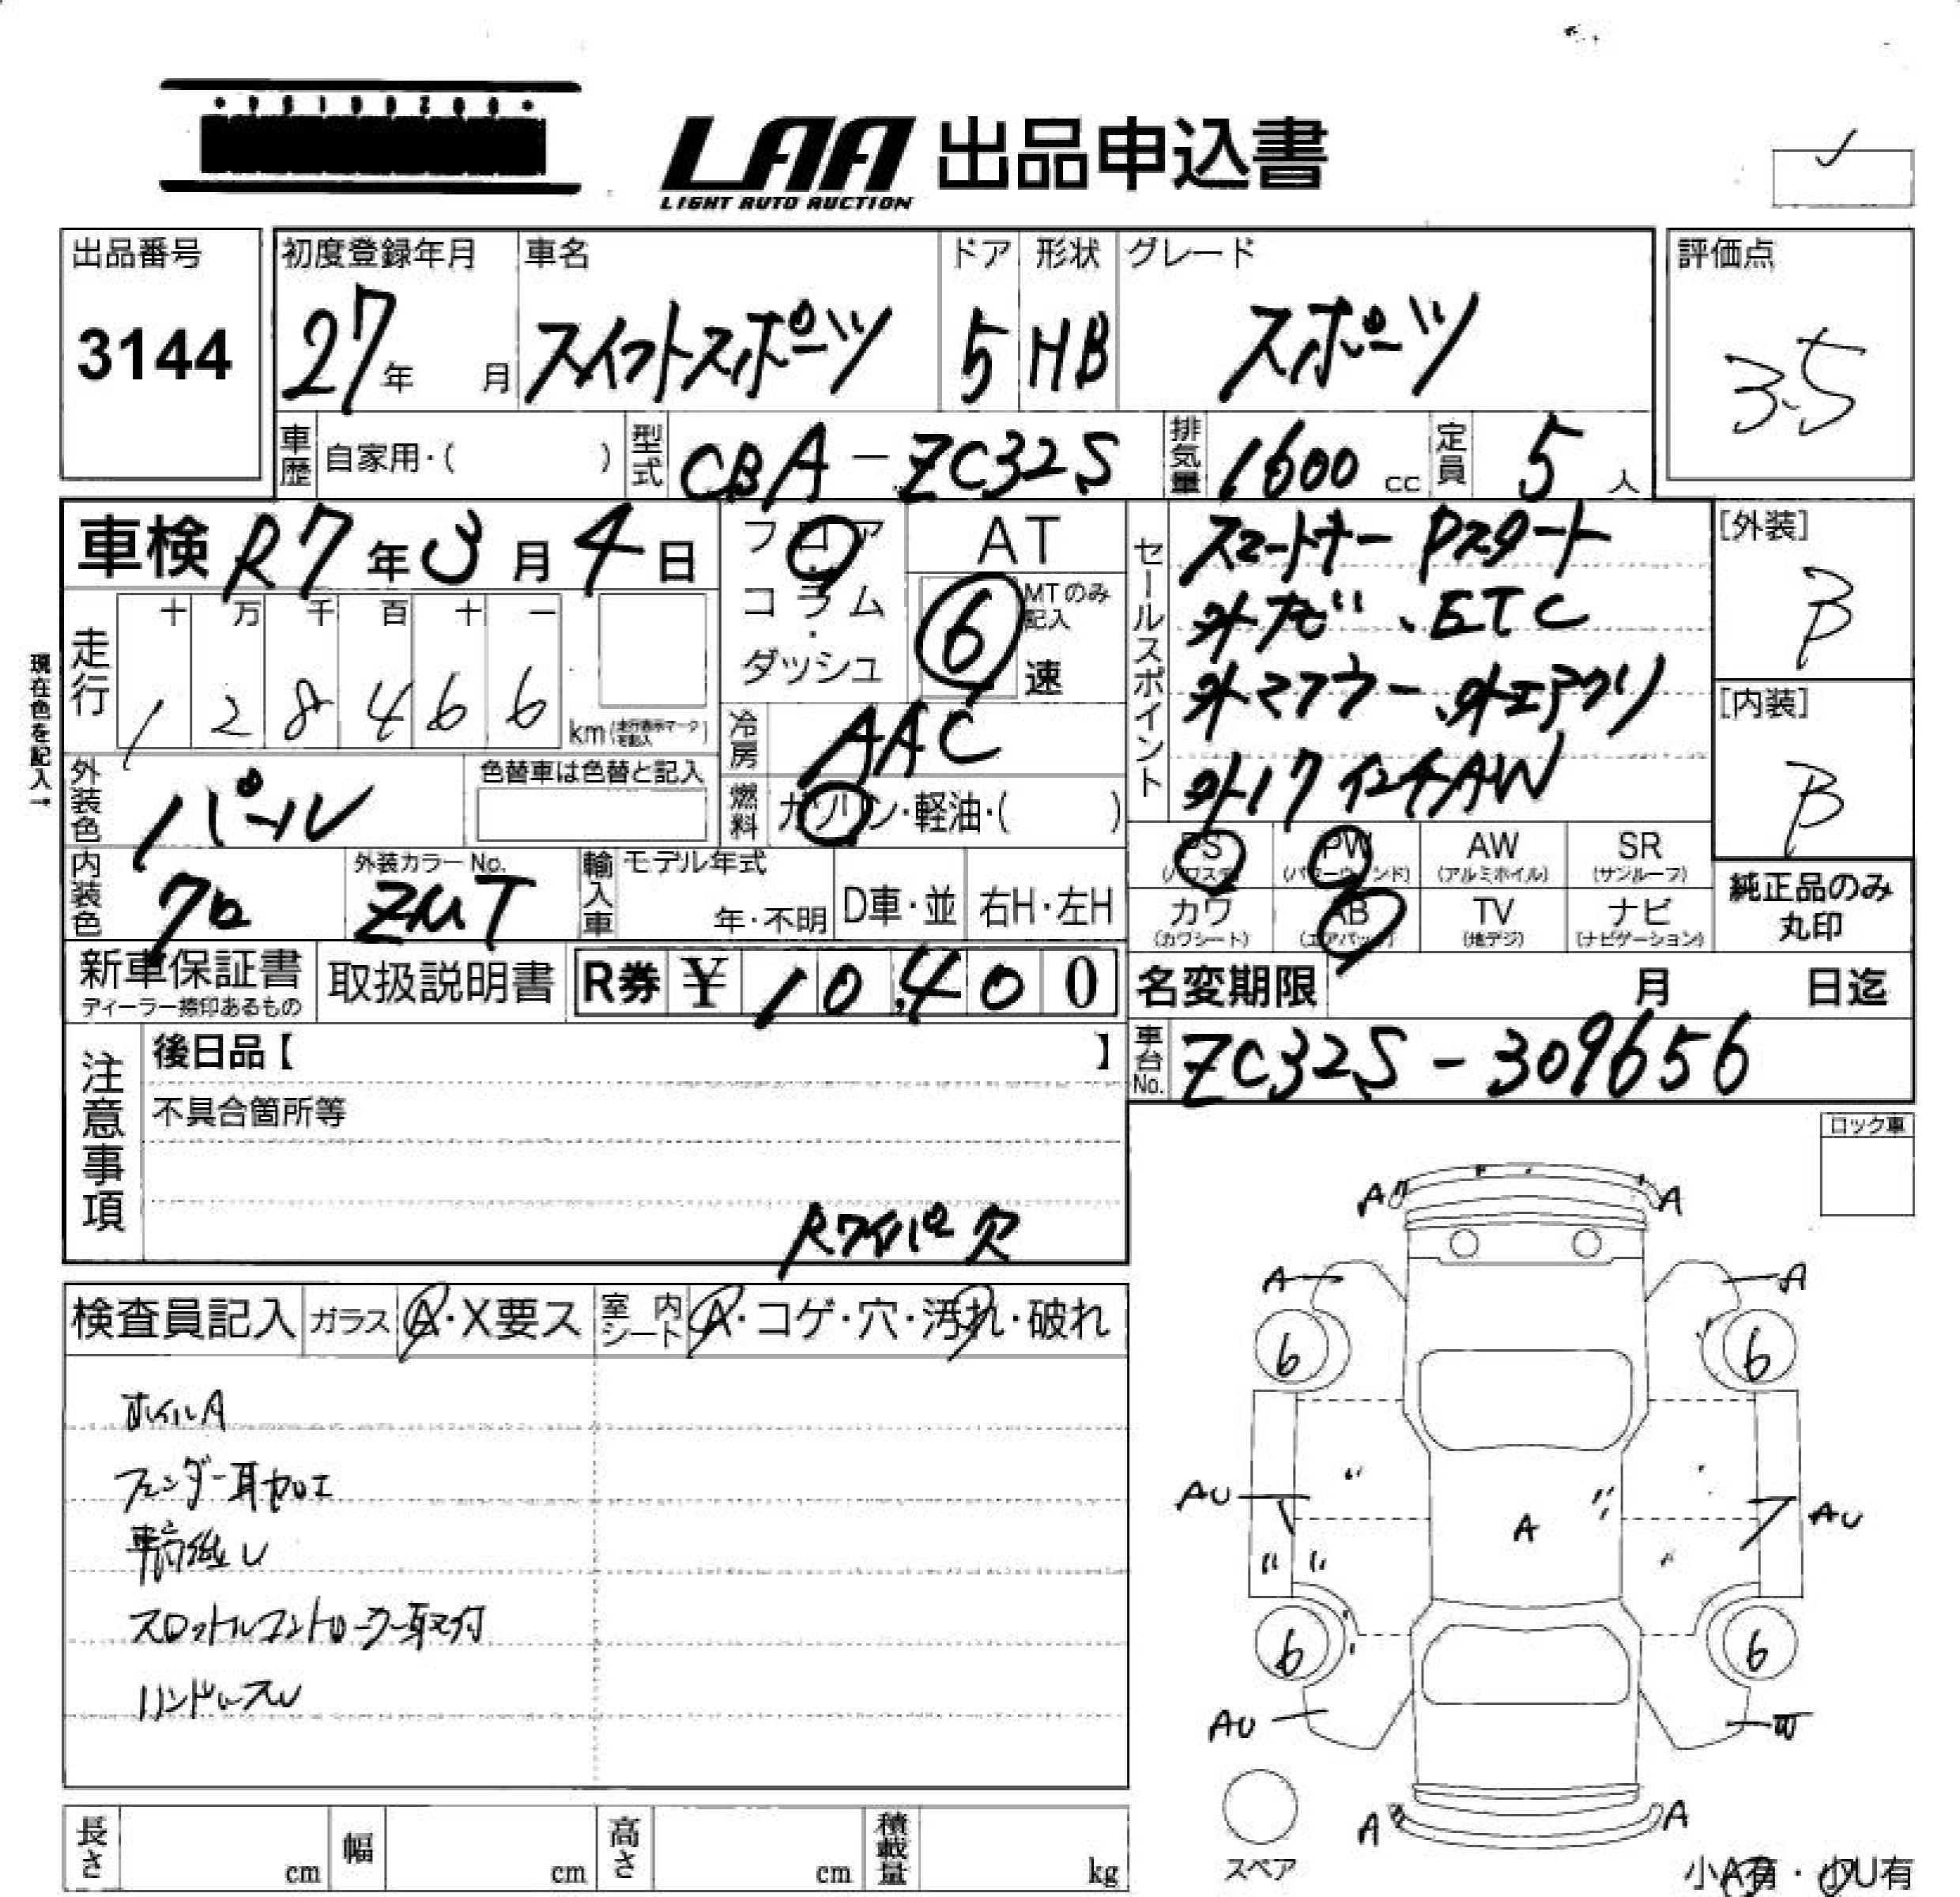 LAA 出品申込書
LIGHT AUTO AUCTION
出品番号
3144
初度登録年月 車名 ドア 形状 グレード
27年 月 スイフトスポーツ 5 HB スポーツ
評価点
3.5
車歴 自家用・( ) 型式 CBA-ZC32S 排気量 1600 cc 定員 5人
車検 R7年3月4日
フロア
コラム
・
ダッシュ
AT
6
MTのみ記入
速
セールスポイント
スマートキー Pスタート
外ナビ、ETC
外マフラー、外エアクリ
外17インチAW
[外装]
B
[内装]
B
現在色を記入→
走行
十 万 千 百 十 一
1 2 8 4 6 6
km (走行表示マークを記入)
冷房 AAC
外装色 パール
色替車は色替と記入
燃料 ガソリン・軽油・( )
PS (パワステ) PW (パワーウィンド) AW (アルミホイル) SR (サンルーフ)
カワ (カワシート) AB (エアバッグ) TV (地デジ) ナビ (ナビゲーション)
純正品のみ
丸印
内装色 クロ
外装カラーNo.
ZMT
輸入車 モデル年式
年・不明 D車・並 右H・左H
新車保証書
ディーラー捺印あるもの
取扱説明書
R券 ¥ 10,400
名変期限 月 日迄
車台No. ZC32S-309656
注意事項
後日品【 】
不具合箇所等
Rワイパー欠
ロック車
検査員記入 ガラス A・X要ス 室内シート A・コゲ・穴・汚れ・破れ
ホイルA
フェンダー耳加工
車高低し
スロットルコントローラー取付
ハンドルスレ
A A
A A
6 6
AU AU
A
6 6
AU W
A A
スペア
小A有・小U有
長さ cm 幅 cm 高さ cm 積載量 kg